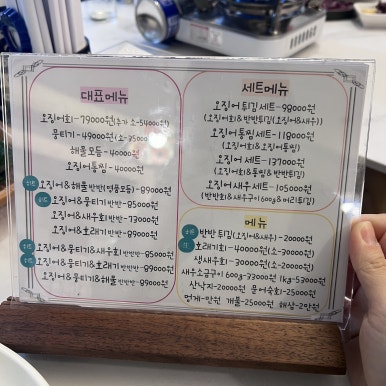 대표메뉴
오징어회-79000원(추가 소-54000원)
뭉티기-49000원(소-35000
해물모듬-40000원
오징어통찜-40000원
오징어&해물반반(명품모듬)-89000원
오징어&뭉티기 반반-85000원
오징어&새우회 반반-73000원
오징어&호래기 반반-89000원
오징어&뭉티기&새우회 반반반-85000원
오징어&뭉티기&호래기 반반반-89000원
오징어&뭉티기&해물 반반반-89000원
세트메뉴
오징어 튀김 세트-98000원
(오징어회&반반튀김(오징어&새우))
오징어 통찜 세트-118000원
(오징어회&오징어통찜)
오징어 세트-137000원
(오징어회&통찜&반반튀김)
오징어 새우 세트-105000원
(반반회&새우구이600g&머리튀김)
메뉴
반반 튀김(오징어&새우)-20000원
호래기회-40000원(소-30000원)
생새우회-30000원(소-20000원)
새우소금구이 600g-33000원 1kg-53000원
산낙지-20000원 문어숙회-25000원
멍게-만원 개불-25000원 해삼-2만원